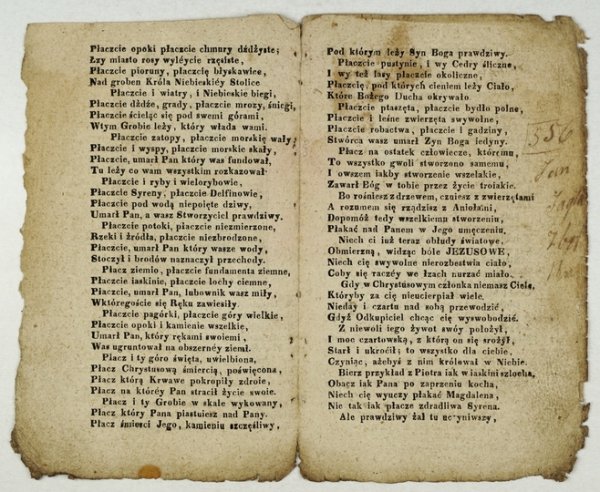 Płaczcie opoki płaczcie chmury dżdżyste;
Łzy miasto rosy wyléycie rzęsiste,
Płaczcie pioruny, płaczcię błyskawice,
Nad groben Króla Niebieskiéy Stolice
Płaczcie i wiatry, i Niebieskie biegi,
Płaczcie dżdże, grady, płaczcie mrozy, śniegi,
Płaczcie ścieląc się pod swemi górami,
Wtym Grobie leży, który włada wami.
Płaczcie zatopy, płaczcie morskię wały;
Płaczcie i wyspy, płaczcie morskie skały,
Płaczcie, umarł Pan który was fundował,
Tu leży co wam wszystkim rozkazował
Płaczcie i ryby i wielorybowie,
Płaczcie Syreny, płaczcie Delfinowie,
Płaczcie pod wodą niepoięte dziwy,
Umarł Pan, a wasz Stworzyciel prawdziwy.
Płaczcie potoki, płaczcie niezmierzone,
Rzeki i źródła, płaczcie niezbrodzone,
Płaczcie, umarł Pan który wasze wody,
Stoczył i brodów naznaczył przechody.
Płacz ziemio, płaczcie fundamenta ziemne,
Płaczcie iaskinie, płaczcie lochy ciemne,
Płaczcie, umarł Pan, lubownik wasz miły,
Wktóregoście się Ręku zawiesiły.
Płaczcie pagórki, płaczcie góry wielkie,
Płaczcie opoki i kamienie wszelkie,
Umarł Pan, który rękami swoiemi,
Was ugruntował na obszernéy ziemi.
Płacz i ty góro święta, uwielbiona,
Płacz Chrystusową śmiercią, poświęcona,
Płacz którą Krwawe pokropiły zdroie,
Płacz na któréy Pan stracił życie swoie.
Płacz i ty Grobie w skale wykowany,
Płacz który Pana piastuiesz nad Pany.
Płacz śmiesci Jego, kamieniu szczęśliwy,
Pod którym leży Syn Boga prawdziwy.
Płaczcie pustynie, i wy Cedry śliczne,
I wy też lasy płaczcie okoliczne,
Płaczcię, pod których cieniem leży Ciało,
Które Bożego Ducha okrywało.
Płaczcie ptaszęta, płaczcie bydło polne,
Płaczcie i leśne zwierzęta swywolne,
Płaczcie robactwa, płaczcie i gadziny,
Stwórca wasz umarł Zyn Boga iedyny.
Płacz na ostatek człowiecze, któremu,
To wszystko gwoli stworzono samemu,
I owszem iakby stworzenie wszelakie,
Zawarł Bóg w tobie przez życie troiakie.
Bo rośniesz z drzewem, czuiesz z zwierzętami
A rozumem się rządzisz z Aniołami,
Dopomóż tedy wszelkiemu stworzeniu,
Płakać nad Panem w Jego umęczeniu.
Niech ci iuż teraz obłudy światowe,
Obmierzną, widząc bóle JEZUSOWE,
Niech cię swywolne nierozbestwia ciało,
Coby się raczéy we łzach nurzać miało.
Gdy w Chrystusowym członka niemasz Ciele,
Któryby za cię nieucierpiał wiele.
Nieday i czartu nad sobą przewodzić,
Gdyż Odkupiciel chcąc cię wyswobodzić.
Z niewoli tego żywot swóy położył,
I moc czartowską, z którą on się srożył,
Starł i ukrócił; to wszystko dla ciebie.
Czyniąc, ażebyś z nim królewał w Niebie.
Bierz przykład z Piotra iak w iaskini szlocha,
Obącz iak Pana po zaprzeniu kocha,
Niech cię wyuczy płakać Magdalena,
Nie tak iak płacze zdradliwa Syrena.
Ale prawdziwy żal tu uczyniwszy,
556
Pan